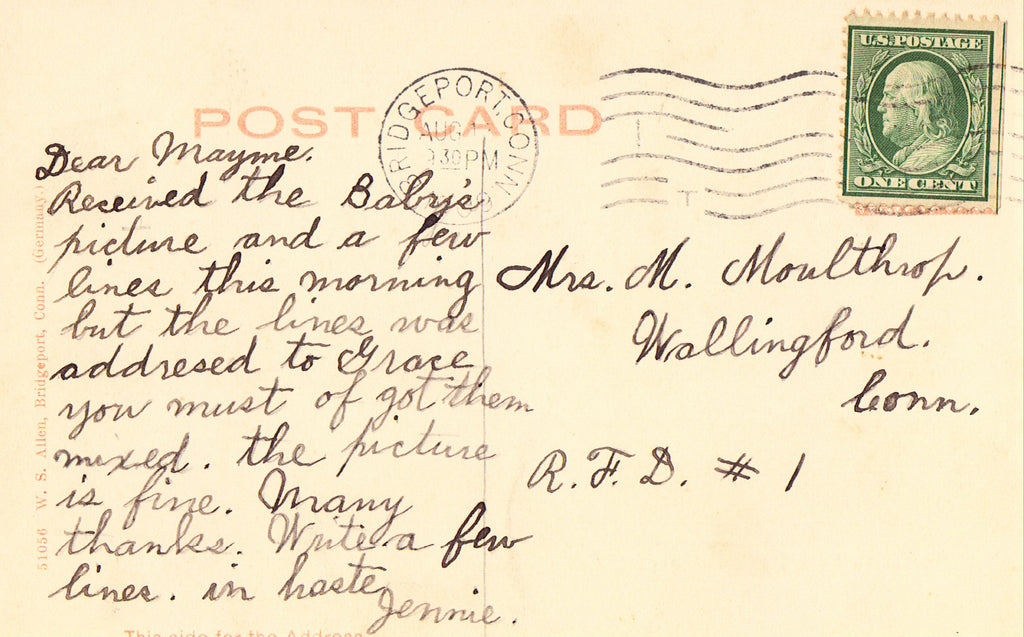 U.S. POSTAGE
ONE CENT
POST CARD
BRIDGEPORT, CONN.
AUG
930 PM
09
Dear Mayme.
Received the Baby's
picture and a few
lines this morning
but the lines was
addresed to Grace
you must of got them
mixed. the picture
is fine. Many
thanks. Write a few
lines. in haste
Jennie.
Mrs. M. Moulthrop.
Wallingford.
Conn.
R. F. D. # 1
51056 W. S. Allen, Bridgeport, Conn. (Germany.)
This side for the Address